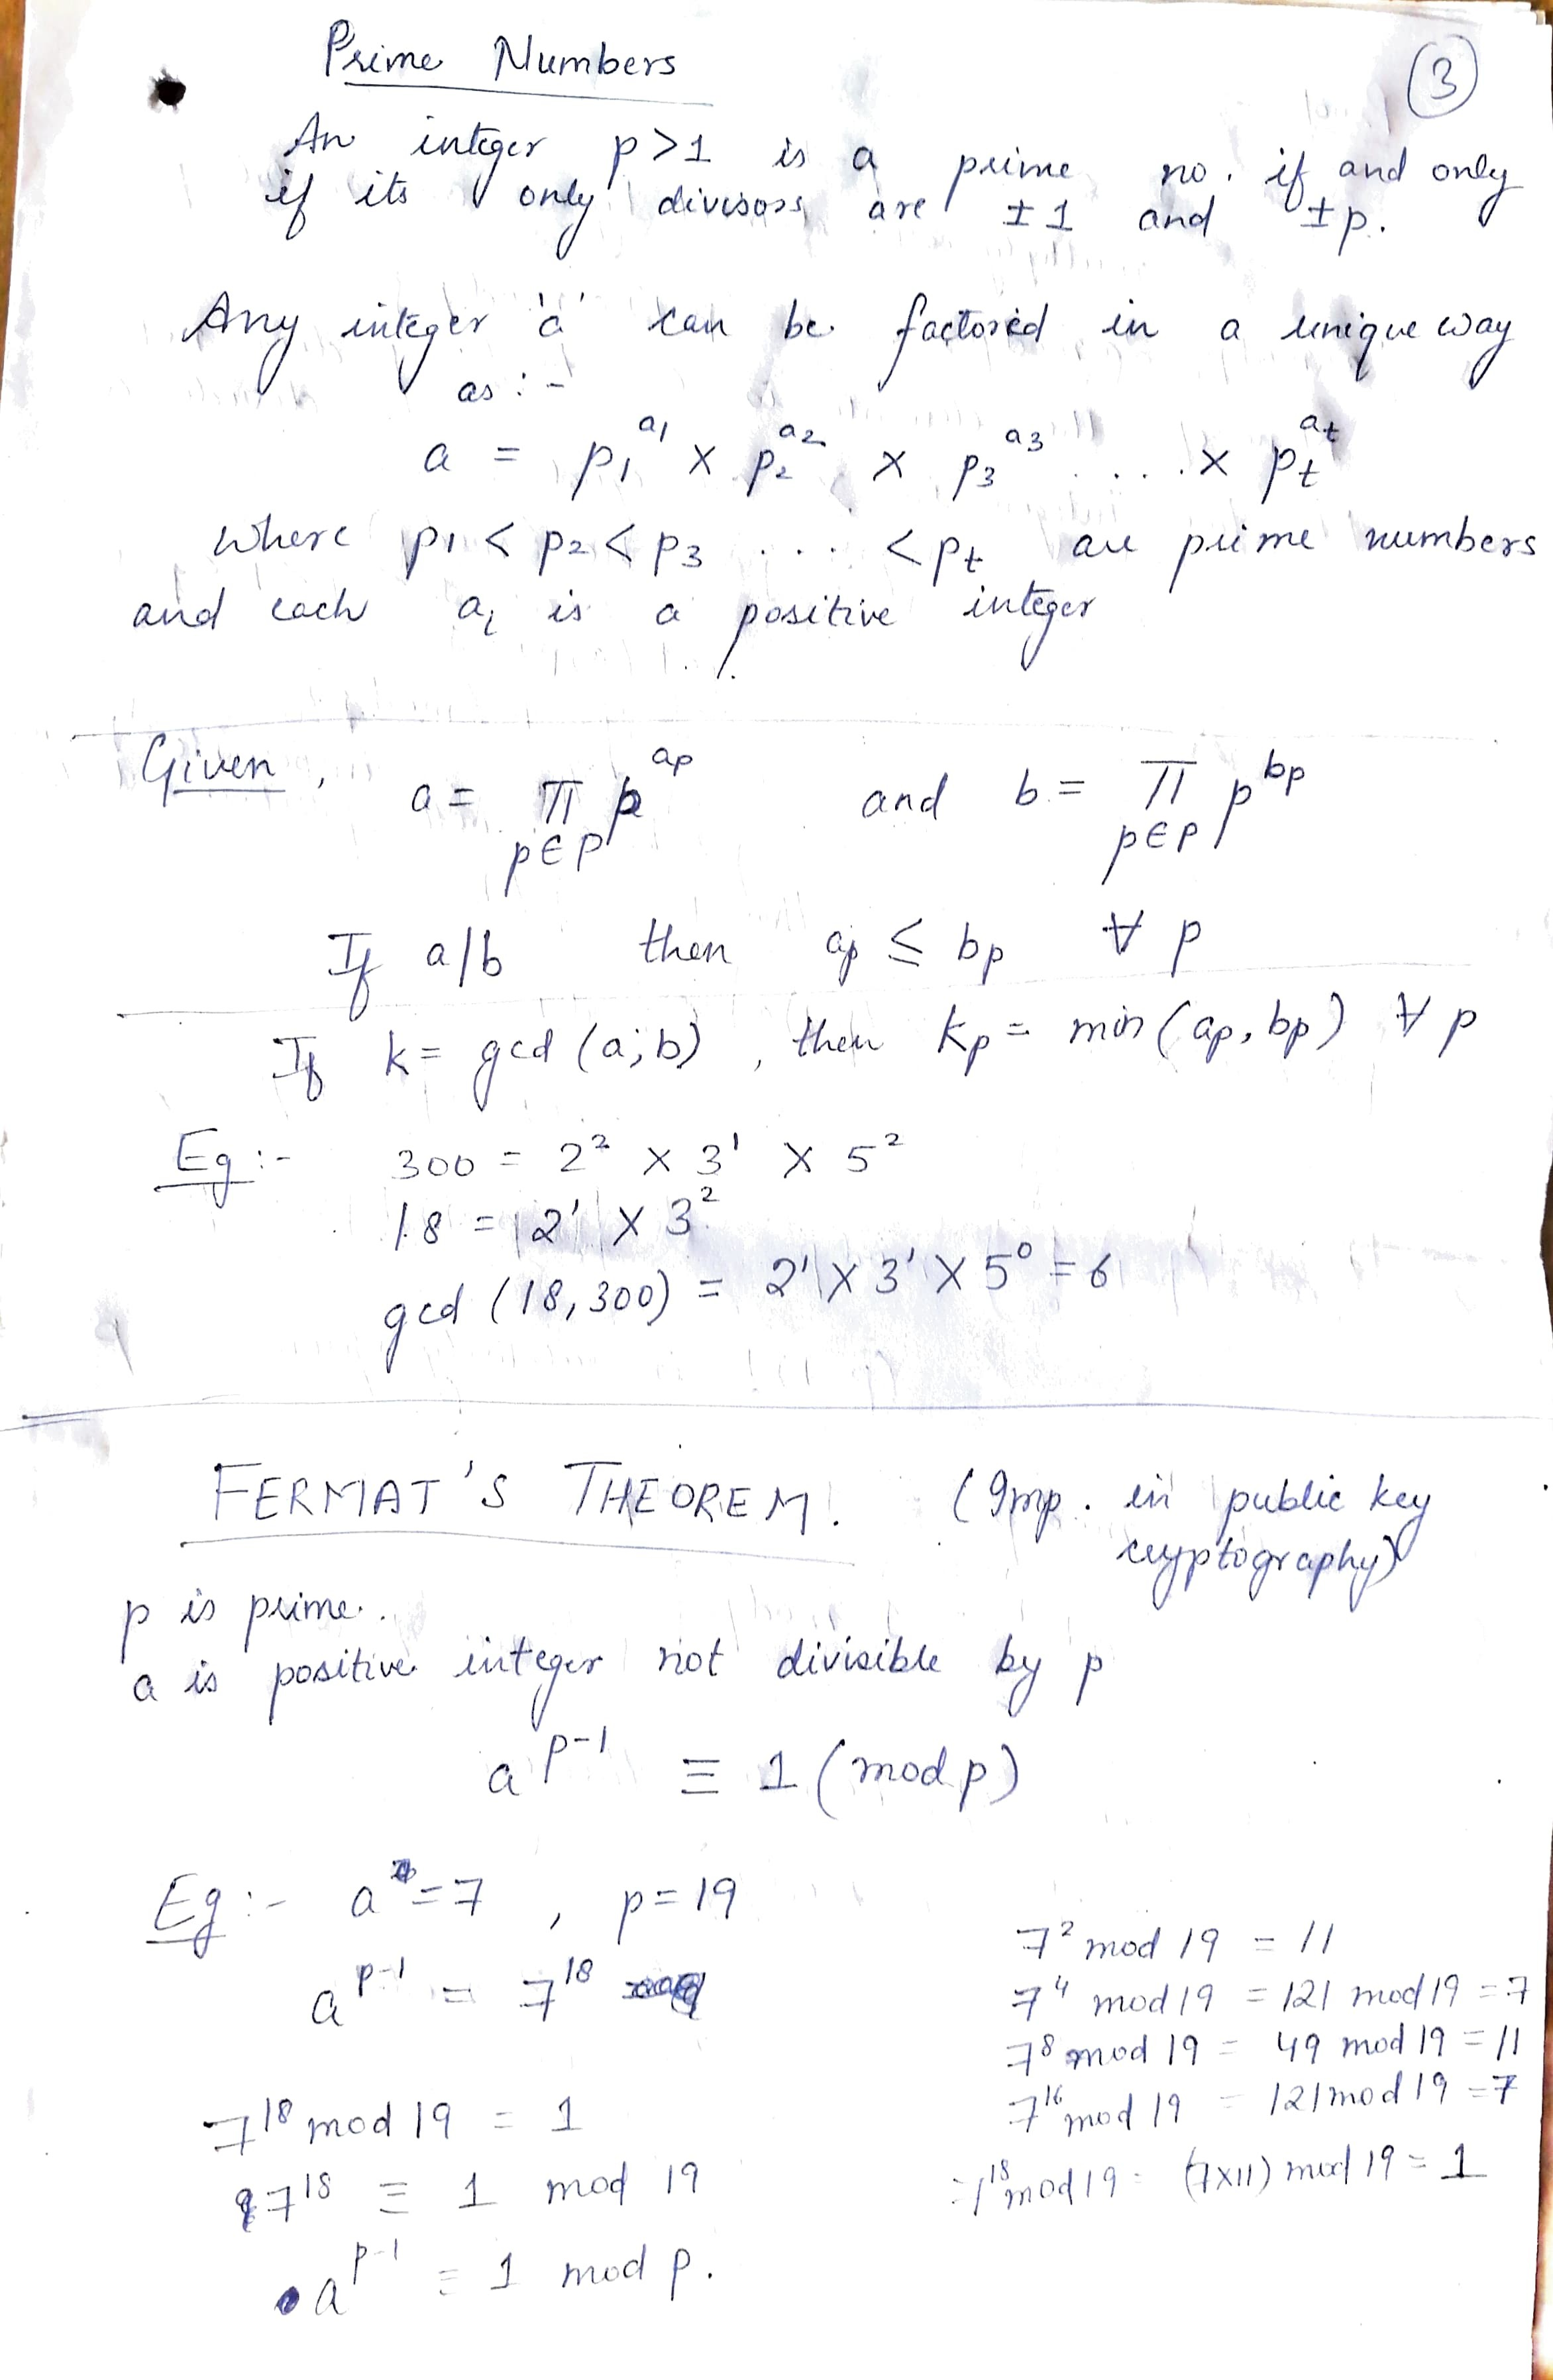 Prime Numbers
③
An integer p>1 is a prime no. if and only
if its only divisors are ±1 and ±p.
Any integer 'a' can be factored in a unique way
as :-
a = p₁^a1 × p₂^a2 × p₃^a3 .... × pₜ^at
where p1 < p2 < p3 ... < pt are prime numbers
and each aᵢ is a positive integer
Given, a = π p^ap and b = π p^bp
p∈P p∈P
If a|b then ap ≤ bp ∀ p
If k = gcd (a,b), then kp = min (ap, bp) ∀ p
Eg :- 300 = 2² × 3¹ × 5²
18 = 2¹ × 3²
gcd (18,300) = 2¹ × 3¹ × 5⁰ = 6
FERMAT'S THEOREM. (Imp. in public key
cryptography)
p is prime.
a is positive integer not divisible by p
a^p-1 ≡ 1 (mod p)
Eg :- a = 7, p = 19
a^p-1 = 7¹⁸
7¹⁸ mod 19 = 1
7¹⁸ ≡ 1 mod 19
a^p-1 ≡ 1 mod p.
7² mod 19 = 11
7⁴ mod 19 = 121 mod 19 = 7
7⁸ mod 19 = 49 mod 19 = 11
7¹⁶ mod 19 = 121 mod 19 = 7
7¹⁸ mod 19 = (7×11) mod 19 = 1